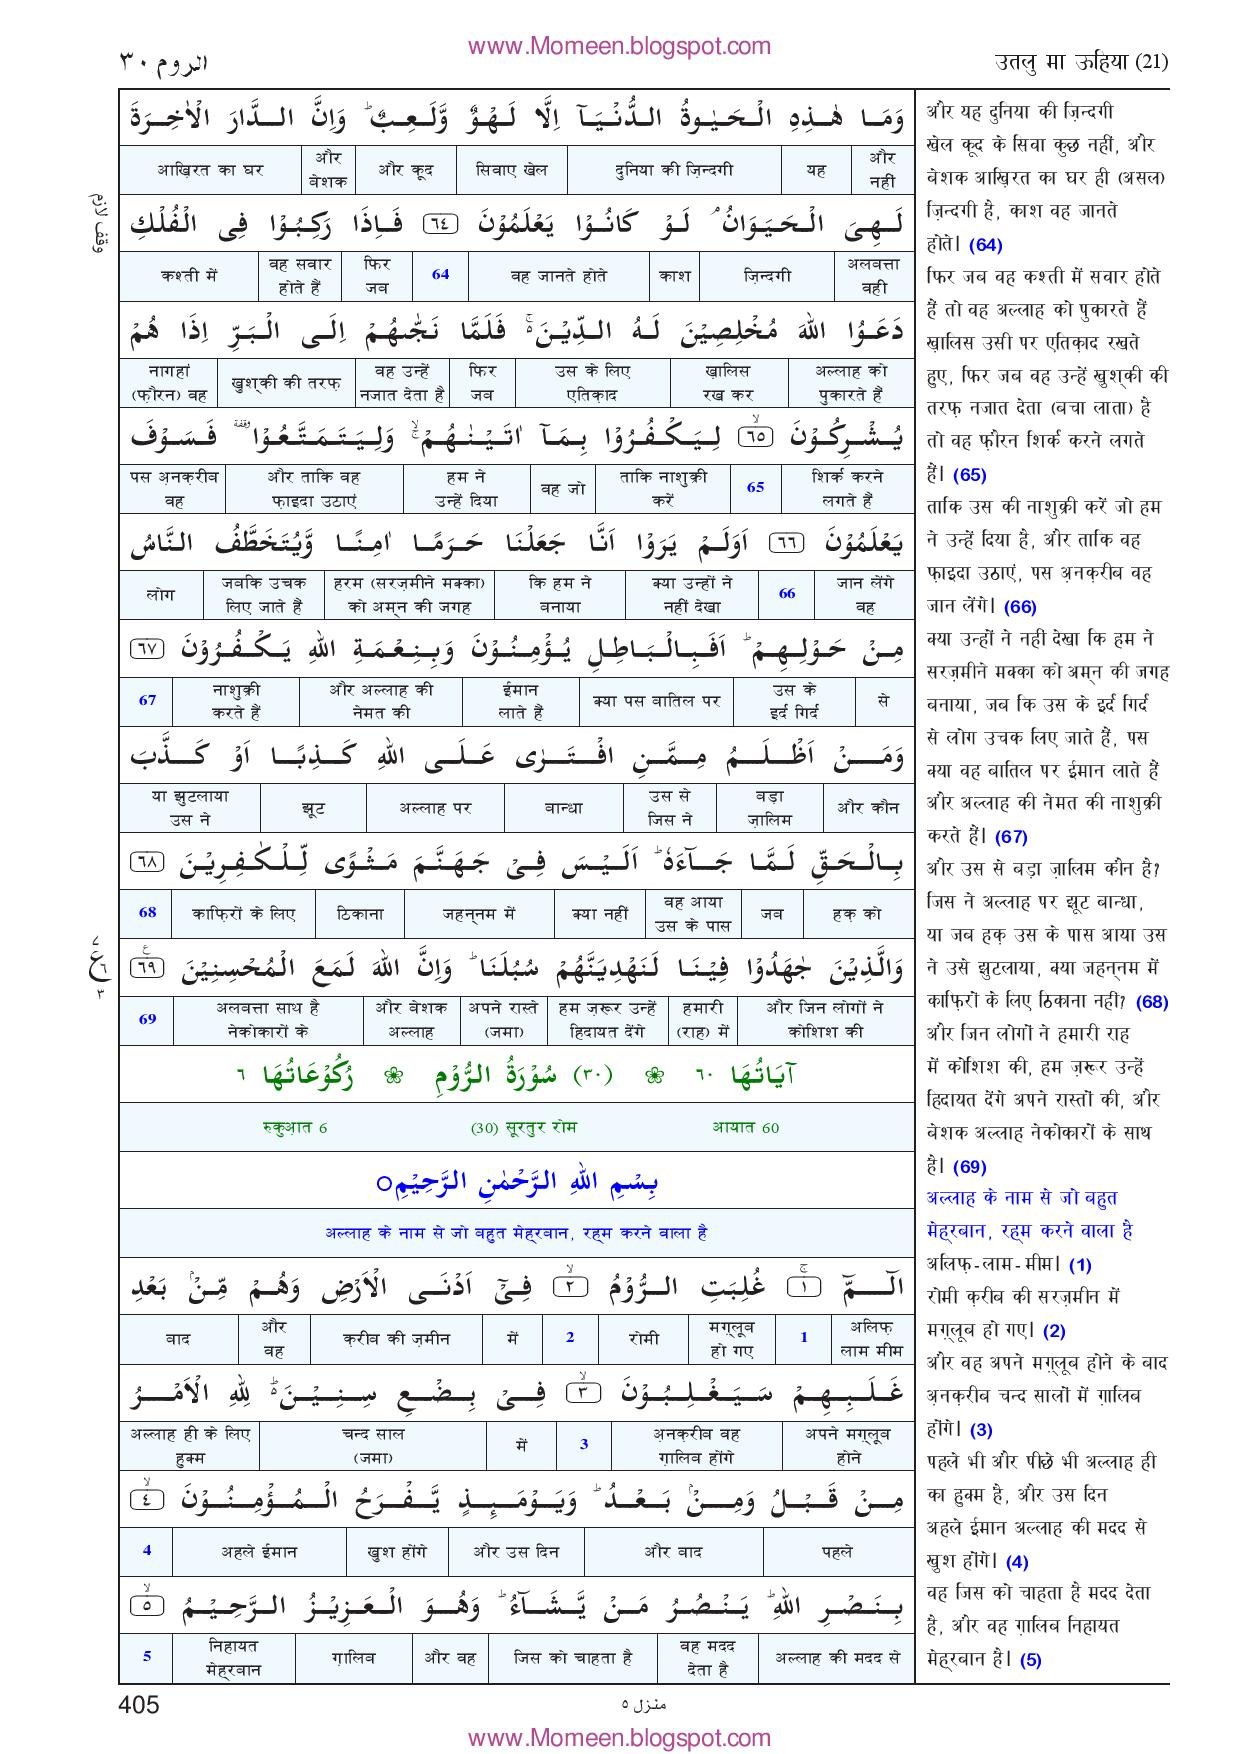 www.Momeen.blogspot.com
الروم ٣٠
उतलु मा ऊहिया (21)
وَمَا هٰذِهِ الْحَيٰوةُ الدُّنْيَآ اِلَّا لَهْوٌ وَّلَعِبٌ ؕ وَاِنَّ الدَّارَ الْاٰخِرَةَ
और नहीं | यह | दुनिया की ज़िन्दगी | सिवाए खेल | और कूद | और बेशक | आख़िरत का घर
لَهِىَ الْحَيَوَانُ ۘ لَوْ كَانُوْا يَعْلَمُوْنَ ٦٤ فَاِذَا رَكِبُوْا فِى الْفُلْكِ
अलबत्ता वही | ज़िन्दगी | काश | वह जानते होते | 64 | फिर जब | वह सवार होते हैं | कश्ती में
دَعَوُا اللّٰهَ مُخْلِصِيْنَ لَهُ الدِّيْنَ ۚ۬ فَلَمَّا نَجّٰىهُمْ اِلَى الْبَرِّ اِذَا هُمْ
अल्लाह को पुकारते हैं | ख़ालिस रख कर | उस के लिए एतिक़ाद | फिर जब | वह उन्हें नजात देता है | खुश्की की तरफ़ | नागहां (फ़ौरन) वह
يُشْرِكُوْنَ ۙ ٦٥ لِيَكْفُرُوْا بِمَآ اٰتَيْنٰهُمْ ۙۚ وَلِيَتَمَتَّعُوْا ۥ وقفة فَسَوْفَ
शिर्क करने लगते हैं | 65 | ताकि नाशुक्री करें | वह जो | हम ने उन्हें दिया | और ताकि वह फ़ाइदा उठाएं | पस अ़नक़रीब वह
يَعْلَمُوْنَ ٦٦ اَوَلَمْ يَرَوْا اَنَّا جَعَلْنَا حَرَمًا اٰمِنًا وَّيُتَخَطَّفُ النَّاسُ
जान लेंगे वह | 66 | क्या उन्हों ने नहीं देखा | कि हम ने बनाया | हरम (सरज़मीने मक्का) को अम्न की जगह | जबकि उचक लिए जाते हैं | लोग
مِنْ حَوْلِهِمْ ؕ اَفَبِالْبَاطِلِ يُؤْمِنُوْنَ وَبِنِعْمَةِ اللّٰهِ يَكْفُرُوْنَ ٦٧
से | उस के इर्द गिर्द | क्या पस बातिल पर | ईमान लाते हैं | और अल्लाह की नेमत की | नाशुक्री करते हैं | 67
وَمَنْ اَظْلَمُ مِمَّنِ افْتَرٰى عَلَى اللّٰهِ كَذِبًا اَوْ كَذَّبَ
और कौन | बड़ा ज़ालिम | उस से जिस ने | बान्धा | अल्लाह पर | झूट | या झुटलाया उस ने
بِالْحَقِّ لَمَّا جَآءَهٗ ؕ اَلَيْسَ فِىْ جَهَنَّمَ مَثْوًى لِّلْكٰفِرِيْنَ ٦٨
हक़ को | जब | वह आया उस के पास | क्या नहीं | जहन्नम में | ठिकाना | काफ़िरों के लिए | 68
وَالَّذِيْنَ جٰهَدُوْا فِيْنَا لَنَهْدِيَنَّهُمْ سُبُلَنَا ؕ وَاِنَّ اللّٰهَ لَمَعَ الْمُحْسِنِيْنَ ٦٩ ع
और जिन लोगों ने कोशिश की | हमारी (राह) में | हम ज़रूर उन्हें हिदायत देंगे | अपने रास्ते (जमा) | और बेशक अल्लाह | अलबत्ता साथ है नेकोकारों के | 69
آيَاتُهَا ٦٠ ❀ (٣٠) سُوْرَةُ الرُّوْمِ ❀ رُكُوْعَاتُهَا ٦
आयात 60 (30) सूरतुर रोम रुकुआ़त 6
بِسْمِ اللّٰهِ الرَّحْمٰنِ الرَّحِيْمِ ○
अल्लाह के नाम से जो बहुत मेह्‌रबान, रह्‌म करने वाला है
الٓـمّٓ ۚ ١ غُلِبَتِ الرُّوْمُ ۙ ٢ فِىْٓ اَدْنَى الْاَرْضِ وَهُمْ مِّنْۢ بَعْدِ
अलिफ़ लाम मीम | 1 | मग़्लूब हो गए | रोमी | 2 | में | क़रीब की ज़मीन | और वह | बाद
غَلَبِهِمْ سَيَغْلِبُوْنَ ۙ ٣ فِىْ بِضْعِ سِنِيْنَ ؕ لِلّٰهِ الْاَمْرُ
अपने मग़्लूब होने | अ़नक़रीब वह ग़ालिब होंगे | 3 | में | चन्द साल (जमा) | अल्लाह ही के लिए हुक्म
مِنْ قَبْلُ وَمِنْۢ بَعْدُ ؕ وَيَوْمَئِذٍ يَّفْرَحُ الْمُؤْمِنُوْنَ ۙ ٤
पहले | और बाद | और उस दिन | खुश होंगे | अहले ईमान | 4
بِنَصْرِ اللّٰهِ ؕ يَنْصُرُ مَنْ يَّشَآءُ ؕ وَهُوَ الْعَزِيْزُ الرَّحِيْمُ ۙ ٥
अल्लाह की मदद से | वह मदद देता है | जिस को चाहता है | और वह | ग़ालिब | निहायत मेह्‌रबान | 5
और यह दुनिया की ज़िन्दगी
खेल कूद के सिवा कुछ नहीं, और
बेशक आख़िरत का घर ही (असल)
ज़िन्दगी है, काश वह जानते
होते। (64)
फिर जब वह कश्ती में सवार होते
हैं तो वह अल्लाह को पुकारते हैं
ख़ालिस उसी पर एतिक़ाद रखते
हुए, फिर जब वह उन्हें खुश्की की
तरफ़ नजात देता (बचा लाता) है
तो वह फ़ौरन शिर्क करने लगते
हैं। (65)
ताकि उस की नाशुक्री करें जो हम
ने उन्हें दिया है, और ताकि वह
फ़ाइदा उठाएं, पस अ़नक़रीब वह
जान लेंगे। (66)
क्या उन्हों ने नहीं देखा कि हम ने
सरज़मीने मक्का को अम्न की जगह
बनाया, जब कि उस के इर्द गिर्द
से लोग उचक लिए जाते हैं, पस
क्या वह बातिल पर ईमान लाते हैं
और अल्लाह की नेमत की नाशुक्री
करते हैं। (67)
और उस से बड़ा ज़ालिम कौन है?
जिस ने अल्लाह पर झूट बान्धा,
या जब हक़ उस के पास आया उस
ने उसे झुटलाया, क्या जहन्नम में
काफ़िरों के लिए ठिकाना नहीं? (68)
और जिन लोगों ने हमारी राह
में कोशिश की, हम ज़रूर उन्हें
हिदायत देंगे अपने रास्तों की, और
बेशक अल्लाह नेकोकारों के साथ
है। (69)
अल्लाह के नाम से जो बहुत
मेह्‌रबान, रह्‌म करने वाला है
अलिफ़-लाम-मीम। (1)
रोमी क़रीब की सरज़मीन में
मग़्लूब हो गए। (2)
और वह अपने मग़्लूब होने के बाद
अ़नक़रीब चन्द सालों में ग़ालिब
होंगे। (3)
पहले भी और पीछे भी अल्लाह ही
का हुक्म है, और उस दिन
अहले ईमान अल्लाह की मदद से
खुश होंगे। (4)
वह जिस को चाहता है मदद देता
है, और वह ग़ालिब निहायत
मेह्‌रबान है। (5)
وقف لازم
٧
ع ٦
٣
405
منزل ٥
www.Momeen.blogspot.com